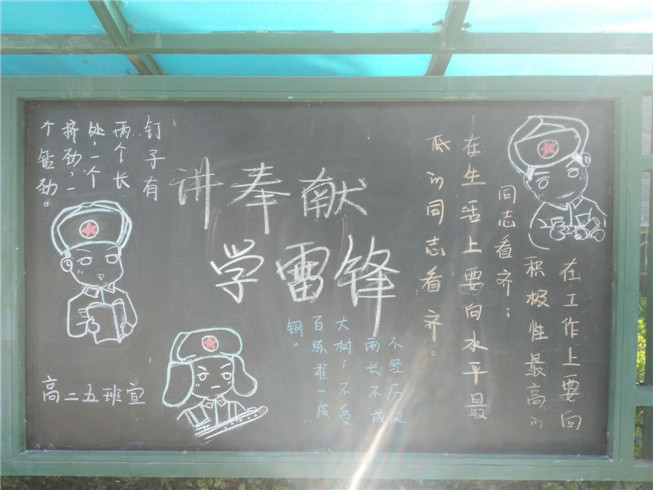 讲奉献
学雷锋
在工作上要向
积极性最高的
同志看齐；
在生活上要向水平最
低的同志看齐。
不经历风
雨长不成
大树；不受
百炼难一成
钢。
钉子有
两个长
处，一个
挤劲，一
个钻劲。
高二五班宣